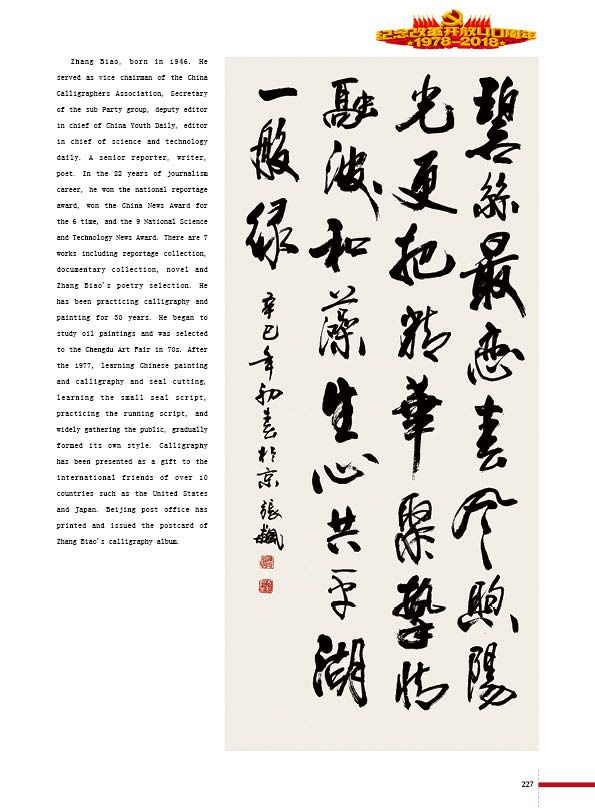 纪念改革开放40周年
1978-2018
Zhang Biao, born in 1946. He
served as vice chairman of the China
Calligraphers Association, Secretary
of the sub Party group, deputy editor
in chief of China Youth Daily, editor
in chief of science and technology
daily. A senior reporter, writer,
poet. In the 22 years of journalism
career, he won the national reportage
award, won the China News Award for
the 6 time, and the 9 National Science
and Technology News Award. There are 7
works including reportage collection,
documentary collection, novel and
Zhang Biao's poetry selection. He
has been practicing calligraphy and
painting for 30 years. He began to
study oil paintings and was selected
to the Chengdu Art Fair in 70s. After
the 1977, learning Chinese painting
and calligraphy and seal cutting,
learning the small seal script,
practicing the running script, and
widely gathering the public, gradually
formed its own style. Calligraphy
has been presented as a gift to the
international friends of over 10
countries such as the United States
and Japan. Beijing post office has
printed and issued the postcard of
Zhang Biao's calligraphy album.
碧絲最恋春风煦陽
光更把精華聚摯情
融波和藻生心共平湖
一般绿
辛巳年初春於京張飙
227